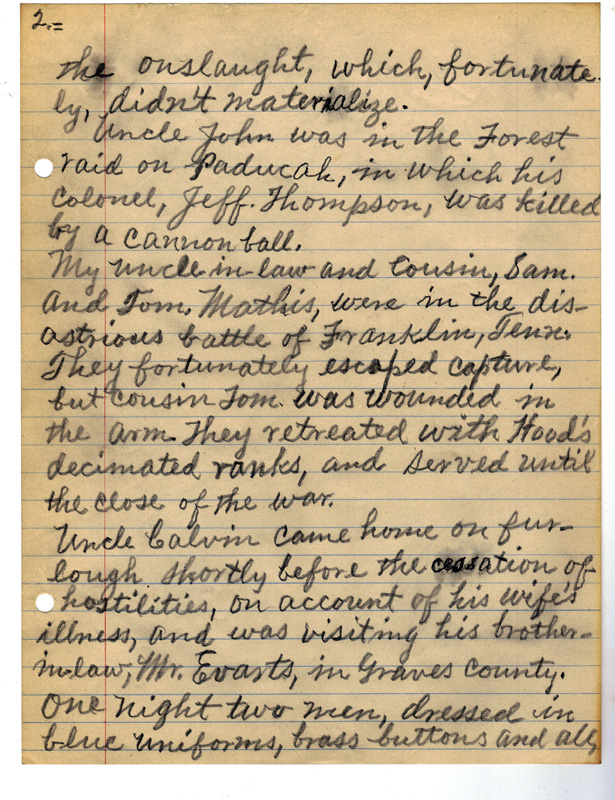 2.=
the onslaught, which, fortunate-
ly, didn't materialize.
Uncle John was in the Forest
raid on Paducah, in which his
Colonel, Jeff. Thompson, was killed
by a cannon ball.
My uncle-in-law and cousin, Sam.
and Tom. Mathis, were in the dis-
astrious battle of Franklin, Tenn.
They fortunately escaped capture,
but cousin Tom was wounded in
the arm. They retreated with Hood's
decimated ranks, and served until
the close of the war.
Uncle Calvin came home on fur-
lough shortly before the cessation of
hostilities, on account of his wife's
illness, and was visiting his brother-
in-law, Mr. Evarts, in Graves County.
One night two men, dressed in
blue uniforms, brass buttons and all,